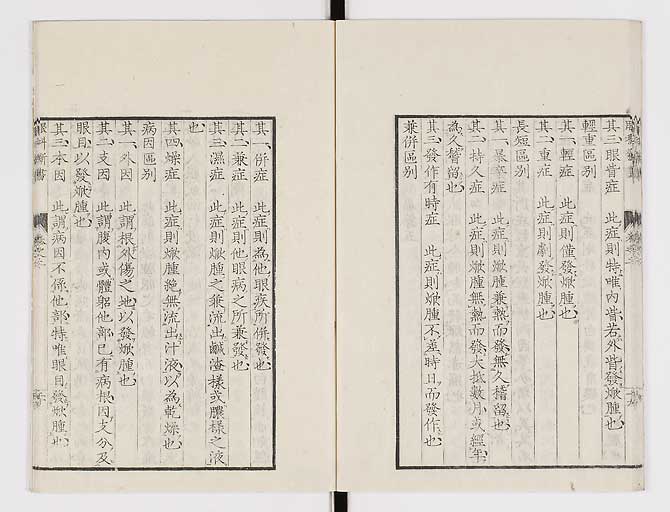 其三眼眥症　此症則特唯內眥若外眥發焮腫也
輕重區別
其一輕症　此症則僅發焮腫也
其二重症　此症則劇發焮腫也
長短區別
其一暴卒症　此症則焮腫兼熱而發無久稽留也
其二持久症　此症則焮腫無熱而發大抵數月或經年
為久稽留也
其三發作有時症　此症則焮腫不差時日而發作也
兼併區別
其一併症　此症則為他眼疾所併發也
其二兼症　此症則他眼病之所兼發也
其三濕症　此症則焮腫之兼流出鹹渣樣或膿樣之液
也
其四燥症　此症則焮腫絕無流出汁液以為乾燥也
病因區別
其一外因　此謂根外傷之地以發焮腫也
其二支因　此謂腹內或體軀他部已有病根因支分及
眼目以發焮腫也
其三本因　此謂病因不係他部特唯眼目發焮腫也
眼科新書